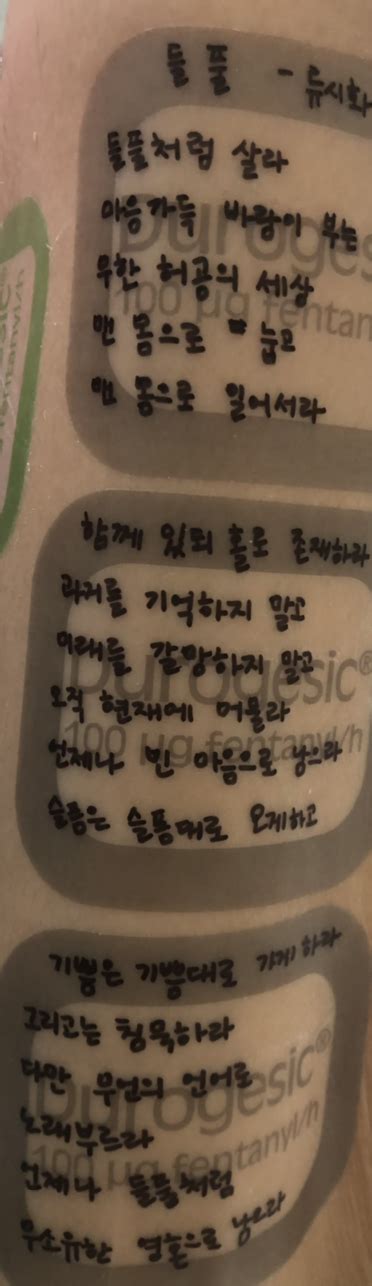 들풀 - 류시화
들풀처럼 살라
마음 가득 바람이 부는
무한 허공의 세상
맨 몸으로 눕고
맨 몸으로 일어서라
함께 있되 홀로 존재하라
과거를 기억하지 말고
미래를 갈망하지 말고
오직 현재에 머물라
언제나 빈 마음으로 남으라
슬픔은 슬픔대로 오게하고
기쁨은 기쁨대로 가게 하라
그리고는 침묵하라
다만 무언의 언어로
노래부르라
언제나 들풀처럼
무소유한 영혼으로 남으라
Duroges
100 µg fentan
Durogesic®
100 µg fentanyl/h
Durogesic®
100 µg fentanyl/h